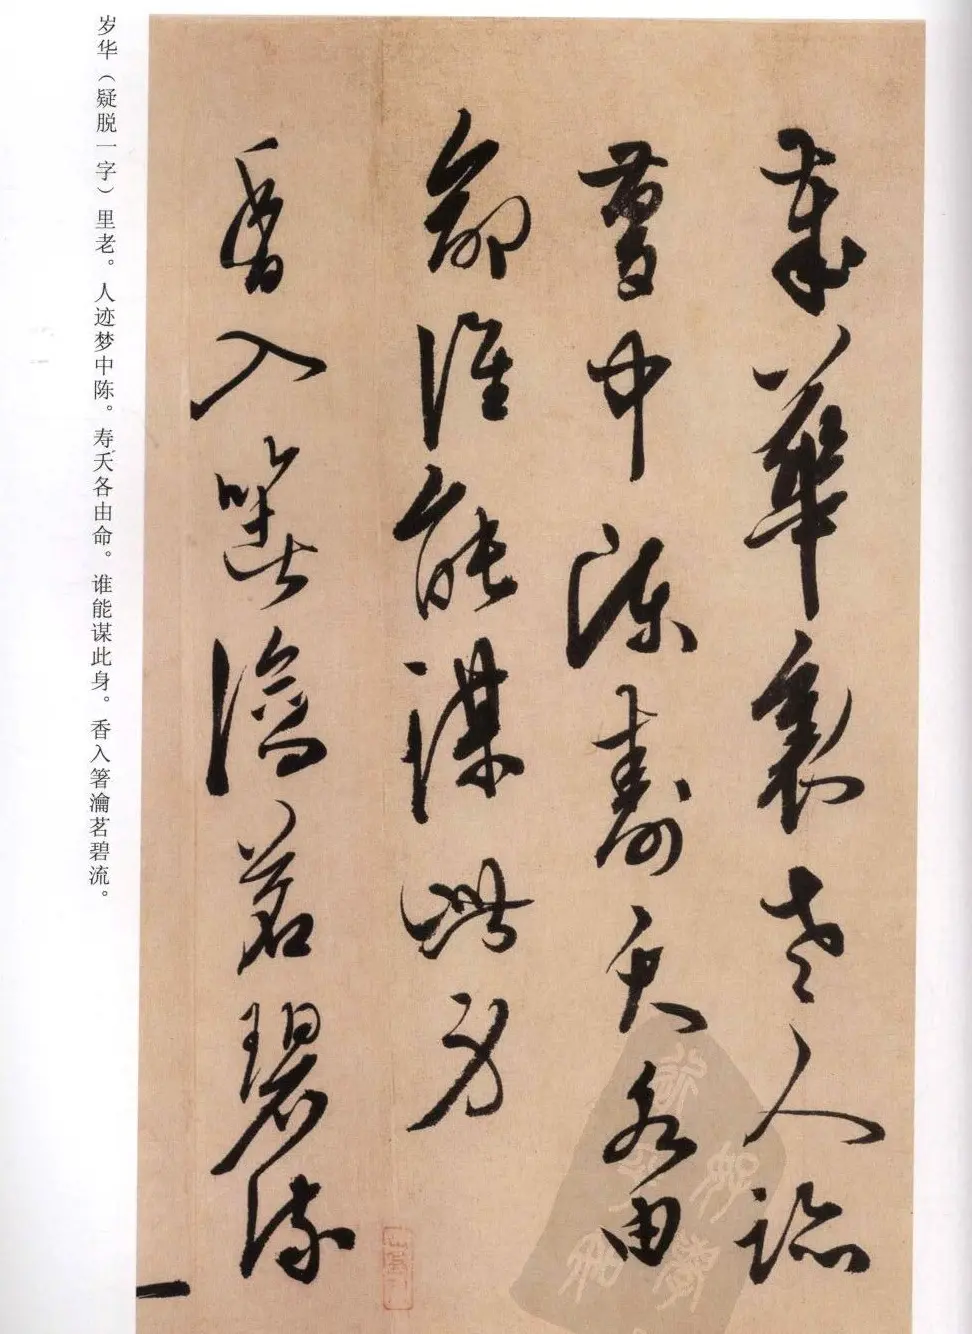 歲華裏老人跡
夢中陳壽夭各由
命誰能謀此身
香入箸瀹茗碧流
岁华（疑脱一字）里老。人迹梦中陈。寿夭各由命。谁能谋此身。香入箸瀹茗碧流。